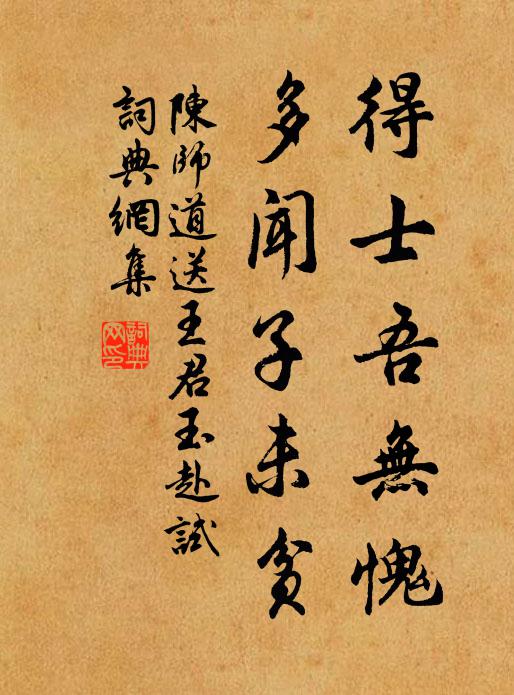 得士吾無愧
多聞子未貧
陳師道送王君玉赴試
詞典網集
詞典
网印